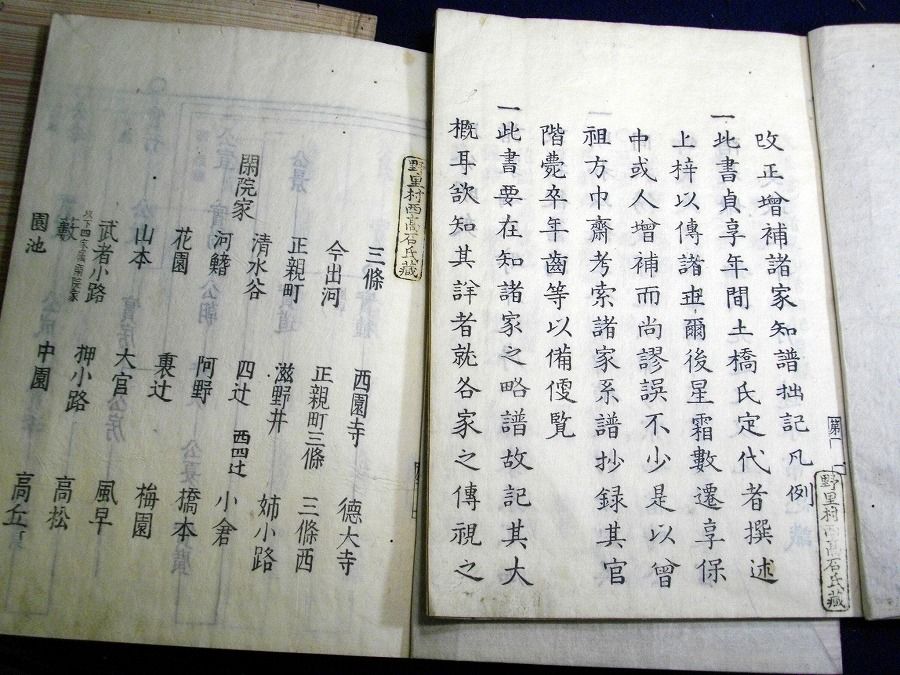 改正增補諸家知譜拙記凡例
一此書貞享年間土橋氏定代者撰述
上梓以傳諸世爾後星霜數遷享保
中或人增補而尚謬誤不少是以曾
祖方巾齋考索諸家系譜抄録其官
階薨卒年齒等以備便覧
一此書要在知諸家之略譜故記其大
概耳欲知其詳者就各家之傳視之
野里村西髙石氏藏
野里村西髙石氏藏
三條 西園寺 德大寺
今出河 正親町三條 三條西
正親町 滋野井 姉小路
清水谷 四辻 西四辻 小倉
閑院家
河鰭 阿野 橋本
花園 裏辻 梅園
山本 大宮 風早
武者小路 押小路 高松
藪 中園 高丘
園池